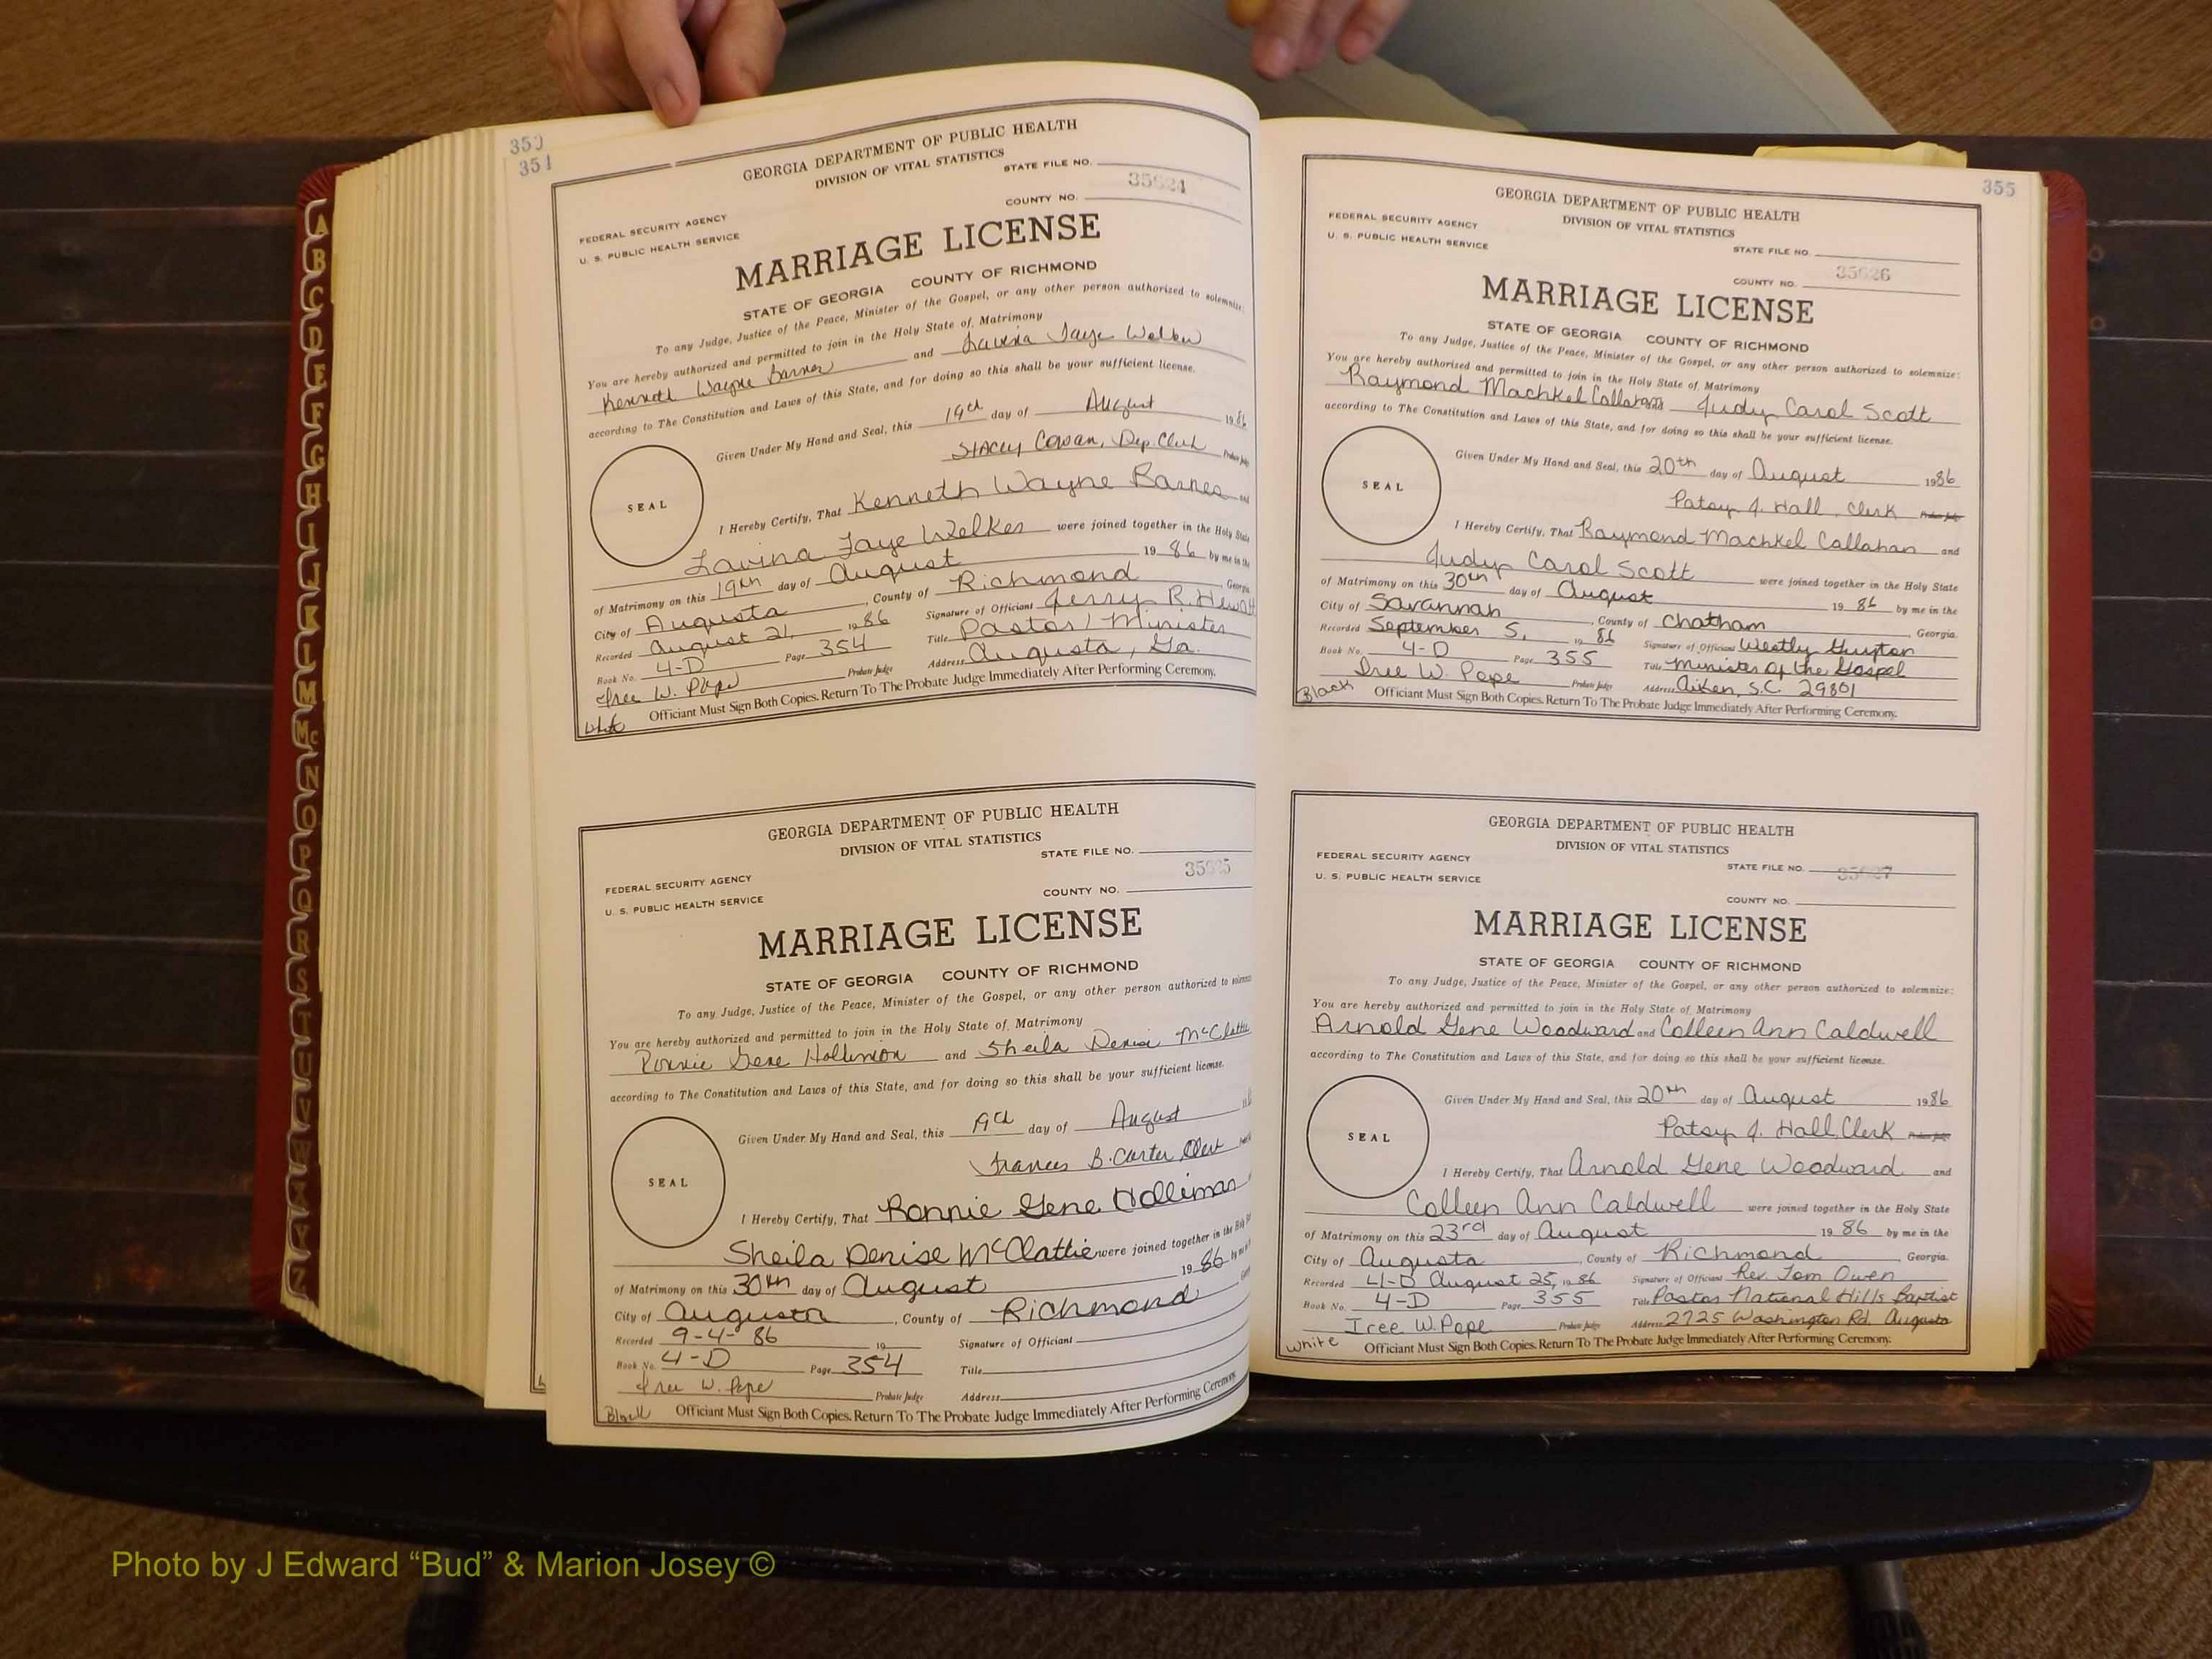 350
351
GEORGIA DEPARTMENT OF PUBLIC HEALTH
DIVISION OF VITAL STATISTICS
STATE FILE NO.
35624
FEDERAL SECURITY AGENCY
COUNTY NO.
U. S. PUBLIC HEALTH SERVICE
MARRIAGE LICENSE
STATE OF GEORGIA COUNTY OF RICHMOND
To any Judge, Justice of the Peace, Minister of the Gospel, or any other person authorized to solemnize:
You are hereby authorized and permitted to join in the Holy State of Matrimony
Kenneth Wayne Barnes and Lavina Faye
according to The Constitution and Laws of this State, and for doing so this shall be your sufficient license.
Given Under My Hand and Seal, this 19th day of August 1986
Stacey Cowan, Dep. Clerk Probate Judge
SEAL
I Hereby Certify, That Kenneth Wayne Barnes and
Lavina Faye Welker were joined together in the Holy State
of Matrimony on this 19th day of August 19 86 by me in the
City of Augusta, County of Richmond Georgia
Recorded August 21, 1986 Signature of Officiant Jerry R. Hewatt
Book No. 4-D Page 354 Title Pastor / Minister
Iree W. Pope Probate Judge Address Augusta, Ga.
Officiant Must Sign Both Copies. Return To The Probate Judge Immediately After Performing Ceremony.
White
GEORGIA DEPARTMENT OF PUBLIC HEALTH
DIVISION OF VITAL STATISTICS
STATE FILE NO.
35625
FEDERAL SECURITY AGENCY
COUNTY NO.
U. S. PUBLIC HEALTH SERVICE
MARRIAGE LICENSE
STATE OF GEORGIA COUNTY OF RICHMOND
To any Judge, Justice of the Peace, Minister of the Gospel, or any other person authorized to
You are hereby authorized and permitted to join in the Holy State of Matrimony
Ronnie Gene Holliman and Sheila Denise McClattie
according to The Constitution and Laws of this State, and for doing so this shall be your sufficient license.
Given Under My Hand and Seal, this 19th day of August
Frances B. Carter, Clerk
SEAL
I Hereby Certify, That Ronnie Gene Holliman
Sheila Denise McClattie were joined together in the Holy
of Matrimony on this 30th day of August 19 86 by me
City of Augusta, County of Richmond
Recorded 9-4-86 19 Signature of Officiant
Book No. 4-D Page 354 Title
Iree W. Pope Probate Judge Address
Black Officiant Must Sign Both Copies. Return To The Probate Judge Immediately After Performing Ceremony.
355
GEORGIA DEPARTMENT OF PUBLIC HEALTH
DIVISION OF VITAL STATISTICS
FEDERAL SECURITY AGENCY
STATE FILE NO.
U. S. PUBLIC HEALTH SERVICE
35626
COUNTY NO.
MARRIAGE LICENSE
STATE OF GEORGIA COUNTY OF RICHMOND
To any Judge, Justice of the Peace, Minister of the Gospel, or any other person authorized to solemnize:
You are hereby authorized and permitted to join in the Holy State of Matrimony
Raymond Machkel Callahan and Judy Carol Scott
according to The Constitution and Laws of this State, and for doing so this shall be your sufficient license.
Given Under My Hand and Seal, this 20th day of August 1986
Patsy J. Hall, Clerk Probate Judge
SEAL
I Hereby Certify, That Raymond Machkel Callahan and
Judy Carol Scott were joined together in the Holy State
of Matrimony on this 30th day of August 19 86 by me in the
City of Savannah, County of Chatham, Georgia.
Recorded September 5, 19 86 Signature of Officiant Westly
Book No. 4-D Page 355 Title Minister of the Gospel
Iree W. Pope Probate Judge Address Aiken, S.C. 29801
Black Officiant Must Sign Both Copies. Return To The Probate Judge Immediately After Performing Ceremony.
GEORGIA DEPARTMENT OF PUBLIC HEALTH
DIVISION OF VITAL STATISTICS
FEDERAL SECURITY AGENCY
STATE FILE NO. 35627
U. S. PUBLIC HEALTH SERVICE
COUNTY NO.
MARRIAGE LICENSE
STATE OF GEORGIA COUNTY OF RICHMOND
To any Judge, Justice of the Peace, Minister of the Gospel, or any other person authorized to solemnize:
You are hereby authorized and permitted to join in the Holy State of Matrimony
Arnold Gene Woodward and Colleen Ann Caldwell
according to The Constitution and Laws of this State, and for doing so this shall be your sufficient license.
Given Under My Hand and Seal, this 20th day of August 1986
Patsy J. Hall, Clerk Probate Judge
SEAL
I Hereby Certify, That Arnold Gene Woodward and
Colleen Ann Caldwell were joined together in the Holy State
of Matrimony on this 23rd day of August 19 86 by me in the
City of Augusta, County of Richmond, Georgia.
Recorded 4-D August 25, 19 86 Signature of Officiant Rev. Tom Owen
Book No. 4-D Page 355 Title Pastor National Hills Baptist
Iree W. Pope Probate Judge Address 2725 Washington Rd. Augusta
White Officiant Must Sign Both Copies. Return To The Probate Judge Immediately After Performing Ceremony.
A
B
C
D
E
F
G
H
I
J
K
L
M
Mc
N
O
P
Q
R
S
T
U
V
W
X
Y
Z
Photo by J Edward “Bud” & Marion Josey ©